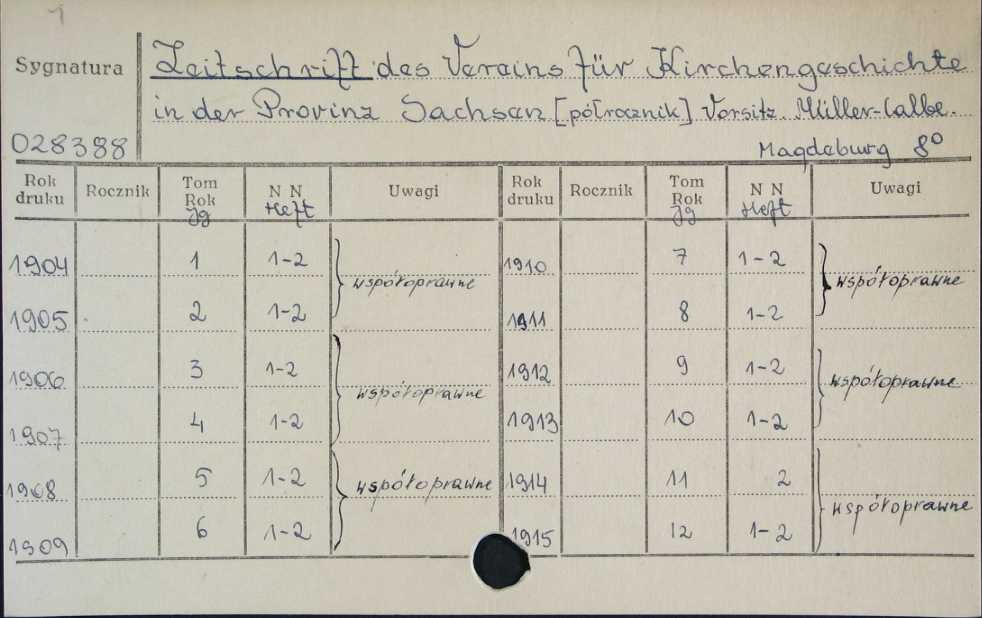 1
Sygnatura
Zeitschrift des Vereins für Kirchengeschichte
in der Provinz Sachsen [półrocznik] Vorsitz. Müller-Calbe.
028388
Magdeburg 8°
Rok druku Rocznik Tom Rok Jg N N Heft Uwagi Rok druku Rocznik Tom Rok Jg N N Heft Uwagi
1904 1 1-2 współoprawne 1910 7 1-2 współoprawne
1905 2 1-2 1911 8 1-2
1906 3 1-2 współoprawne 1912 9 1-2 współoprawne
1907 4 1-2 1913 10 1-2
1908 5 1-2 współoprawne 1914 11 2 współoprawne
1909 6 1-2 1915 12 1-2